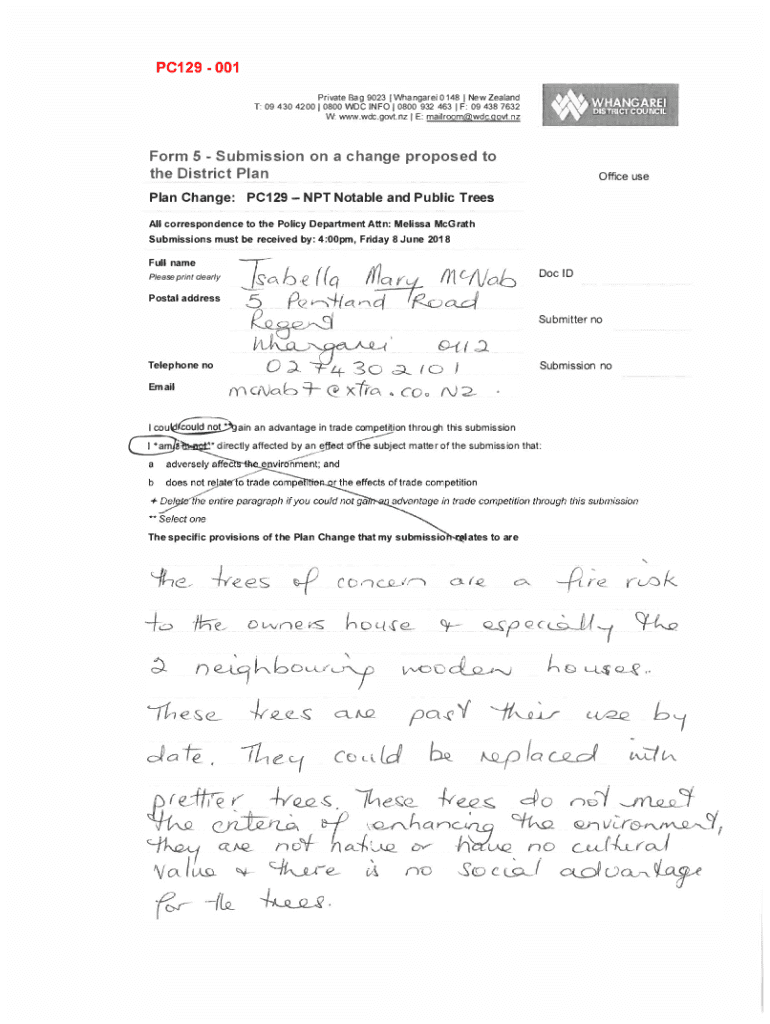 PC129 - 001
Private Bag 9023 | Whangarei 0148 | New Zealand
T: 09 430 4200 | 0800 WDC INFO | 0800 932 463 | F: 09 438 7632
W: www.wdc.govt.nz | E: mailroom@wdc.govt.nz
WHANGAREI
DISTRICT COUNCIL
Form 5 - Submission on a change proposed to
the District Plan
Office use
Plan Change: PC129 – NPT Notable and Public Trees
All correspondence to the Policy Department Attn: Melissa McGrath
Submissions must be received by: 4:00pm, Friday 8 June 2018
Full name
Please print clearly
Isabella Mary McNab
Doc ID
Postal address
5 Pentland Road
Regent
Submitter no
Whangarei 0112
Telephone no
0274302101
Submission no
Email
mcnab7@xtra.co.nz.
I could/could not **gain an advantage in trade competition through this submission
I *am/am not** directly affected by an effect of the subject matter of the submission that:
a adversely affects the environment; and
b does not relate to trade competition or the effects of trade competition
+ Delete the entire paragraph if you could not gain an advantage in trade competition through this submission
** Select one
The specific provisions of the Plan Change that my submission relates to are
The trees of concern are a fire risk
to the owners house & especially the
2 neighbouring wooden houses.
These trees are past their use by
date. They could be replaced with
prettier trees. These trees do not meet
the criteria of enhancing the environment,
they are not native or have no cultural
value & there is no social advantage
for the trees.